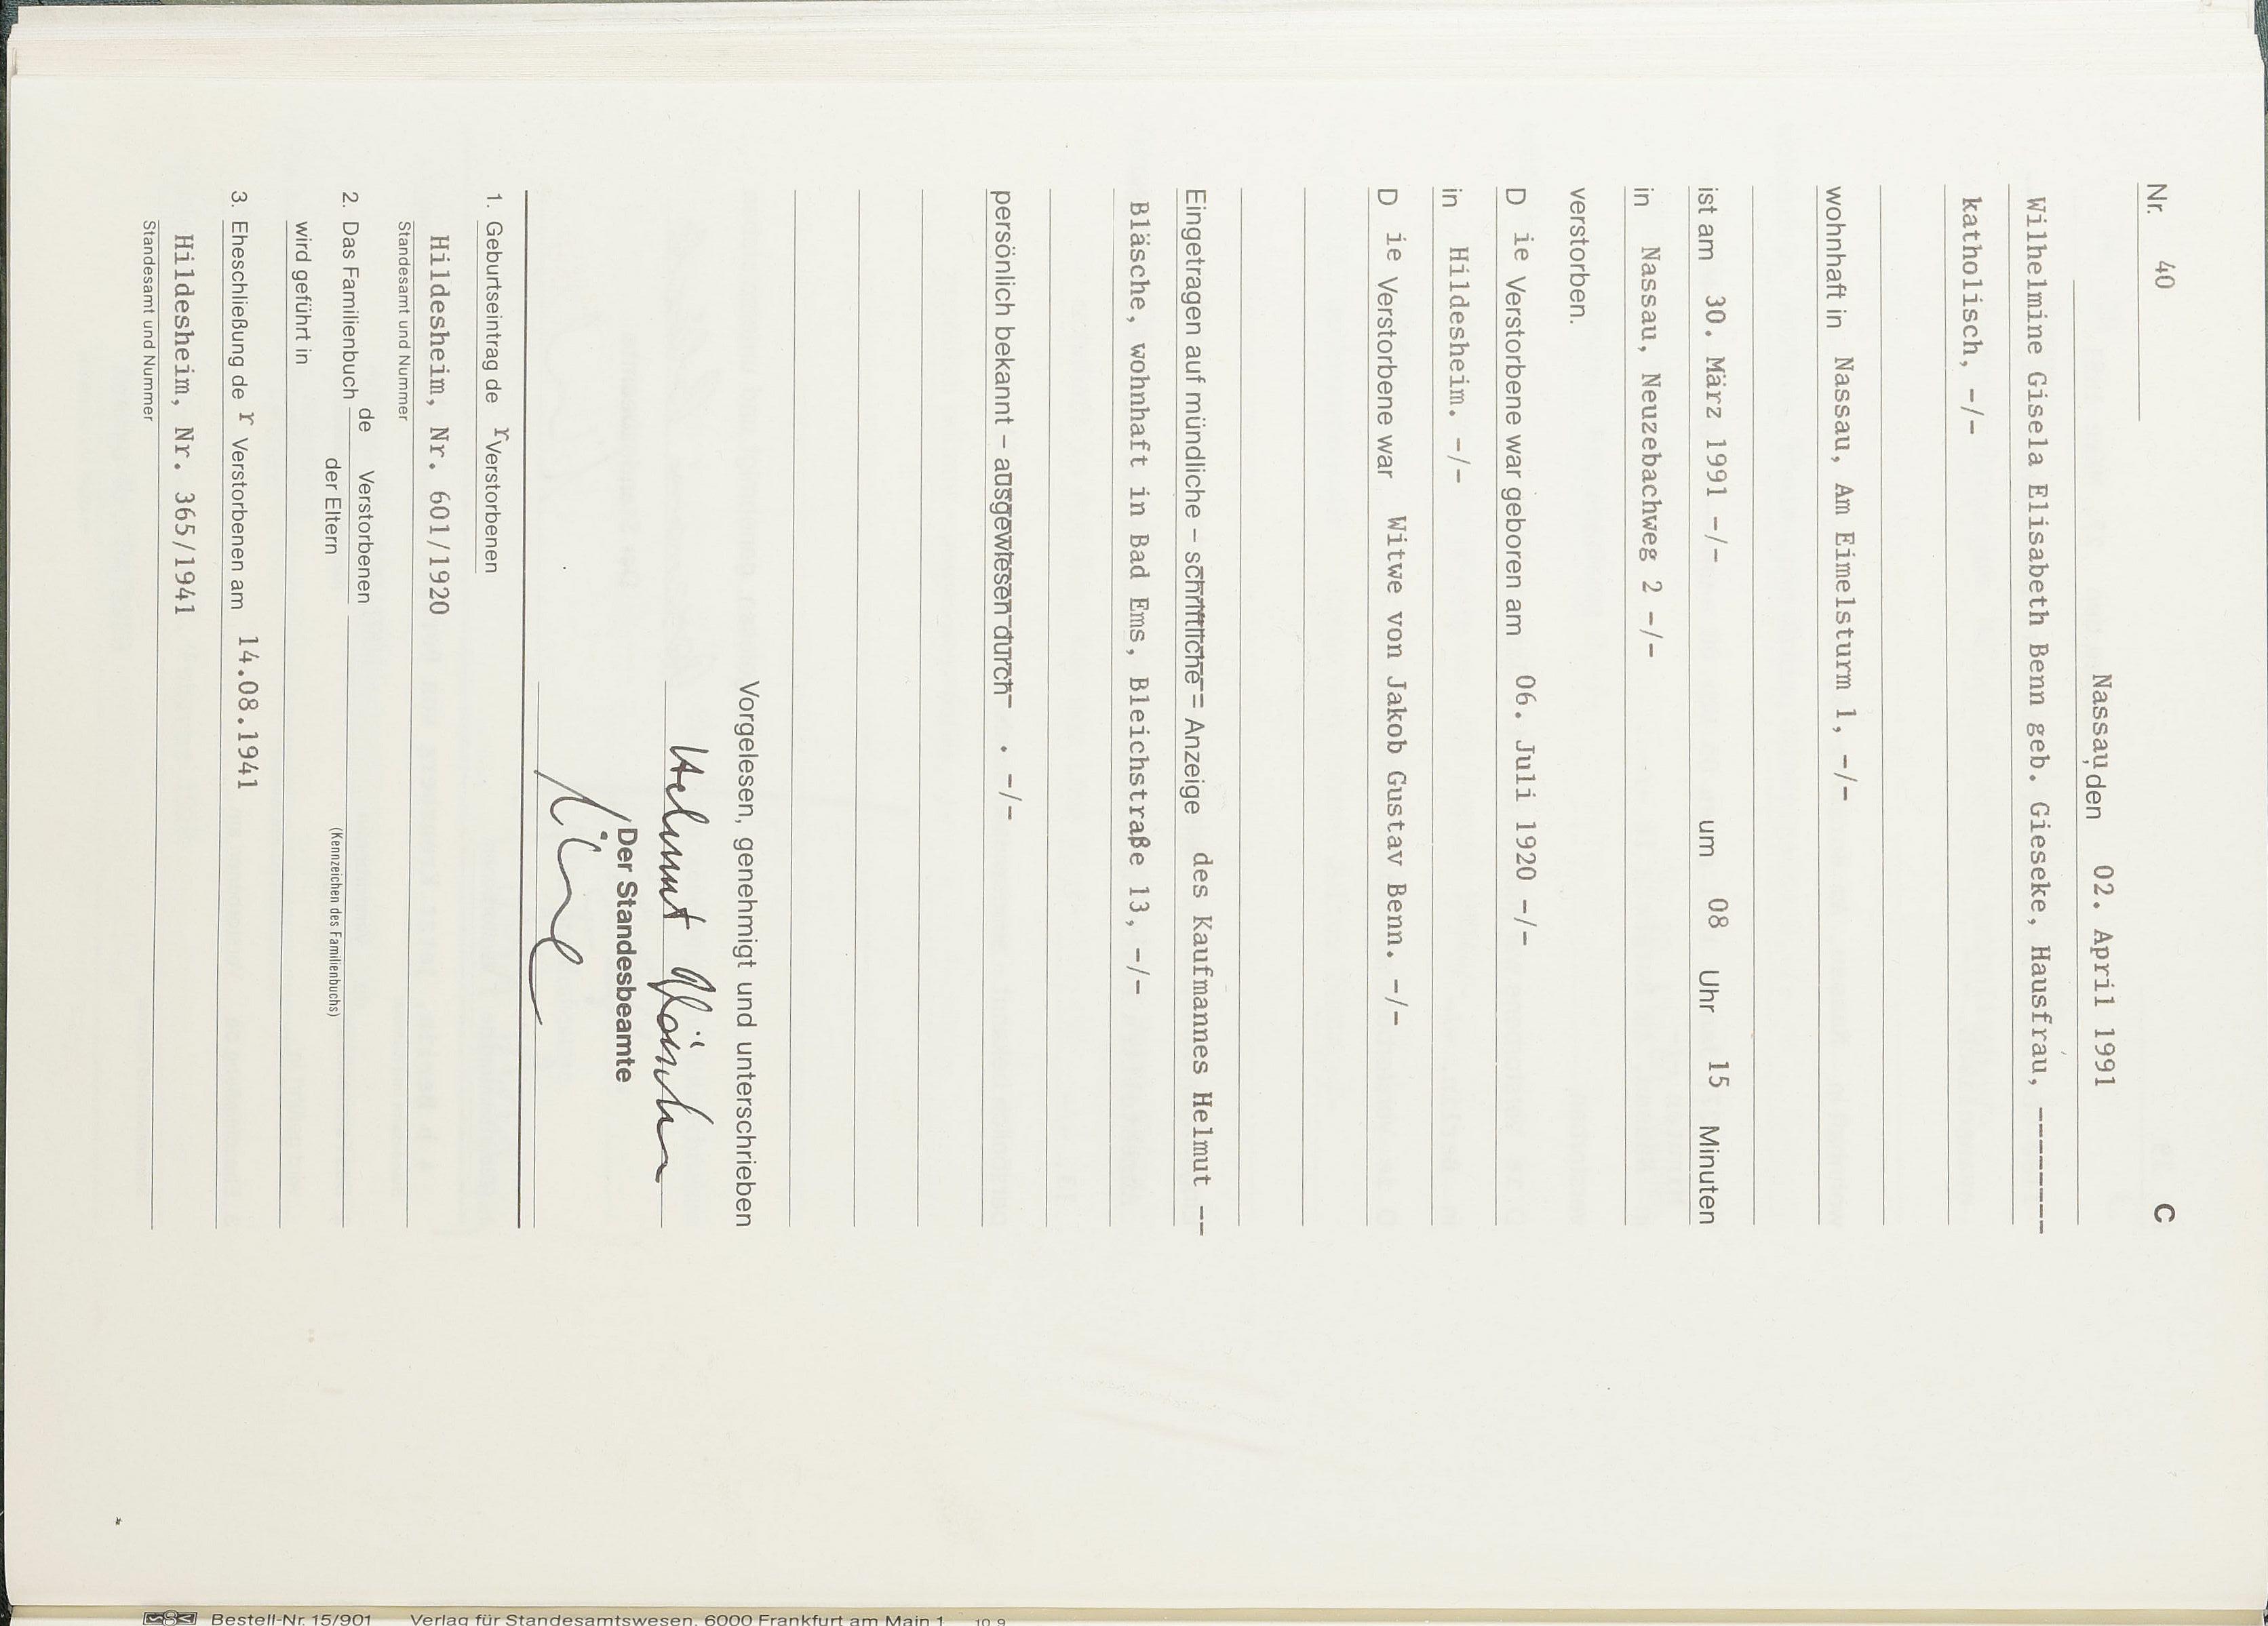 Nr. 40 C
Nassau, den 02. April 1991
Wilhelmine Gisela Elisabeth Benn geb. Gieseke, Hausfrau, --------
katholisch, -/-
wohnhaft in Nassau, Am Eimelsturm 1, -/-
ist am 30. März 1991 -/- um 08 Uhr 15 Minuten
in Nassau, Neuzebachweg 2 -/-
verstorben.
D ie Verstorbene war geboren am 06. Juli 1920 -/-
in Hildesheim. -/-
D ie Verstorbene war Witwe von Jakob Gustav Benn. -/-
Eingetragen auf mündliche – schriftliche – Anzeige des Kaufmannes Helmut --
Bläsche, wohnhaft in Bad Ems, Bleichstraße 13, -/-
persönlich bekannt – ausgewiesen durch . -/-
Vorgelesen, genehmigt und unterschrieben
Helmut Bläsche
Der Standesbeamte
1. Geburtseintrag de r Verstorbenen
Hildesheim, Nr. 601/1920
Standesamt und Nummer
2. Das Familienbuch de Verstorbenen
der Eltern
(Kennzeichen des Familienbuchs)
wird geführt in
3. Eheschließung de r Verstorbenen am 14.08.1941
Hildesheim, Nr. 365/1941
Standesamt und Nummer
Bestell-Nr. 15/901 Verlag für Standesamtswesen, 6000 Frankfurt am Main 1